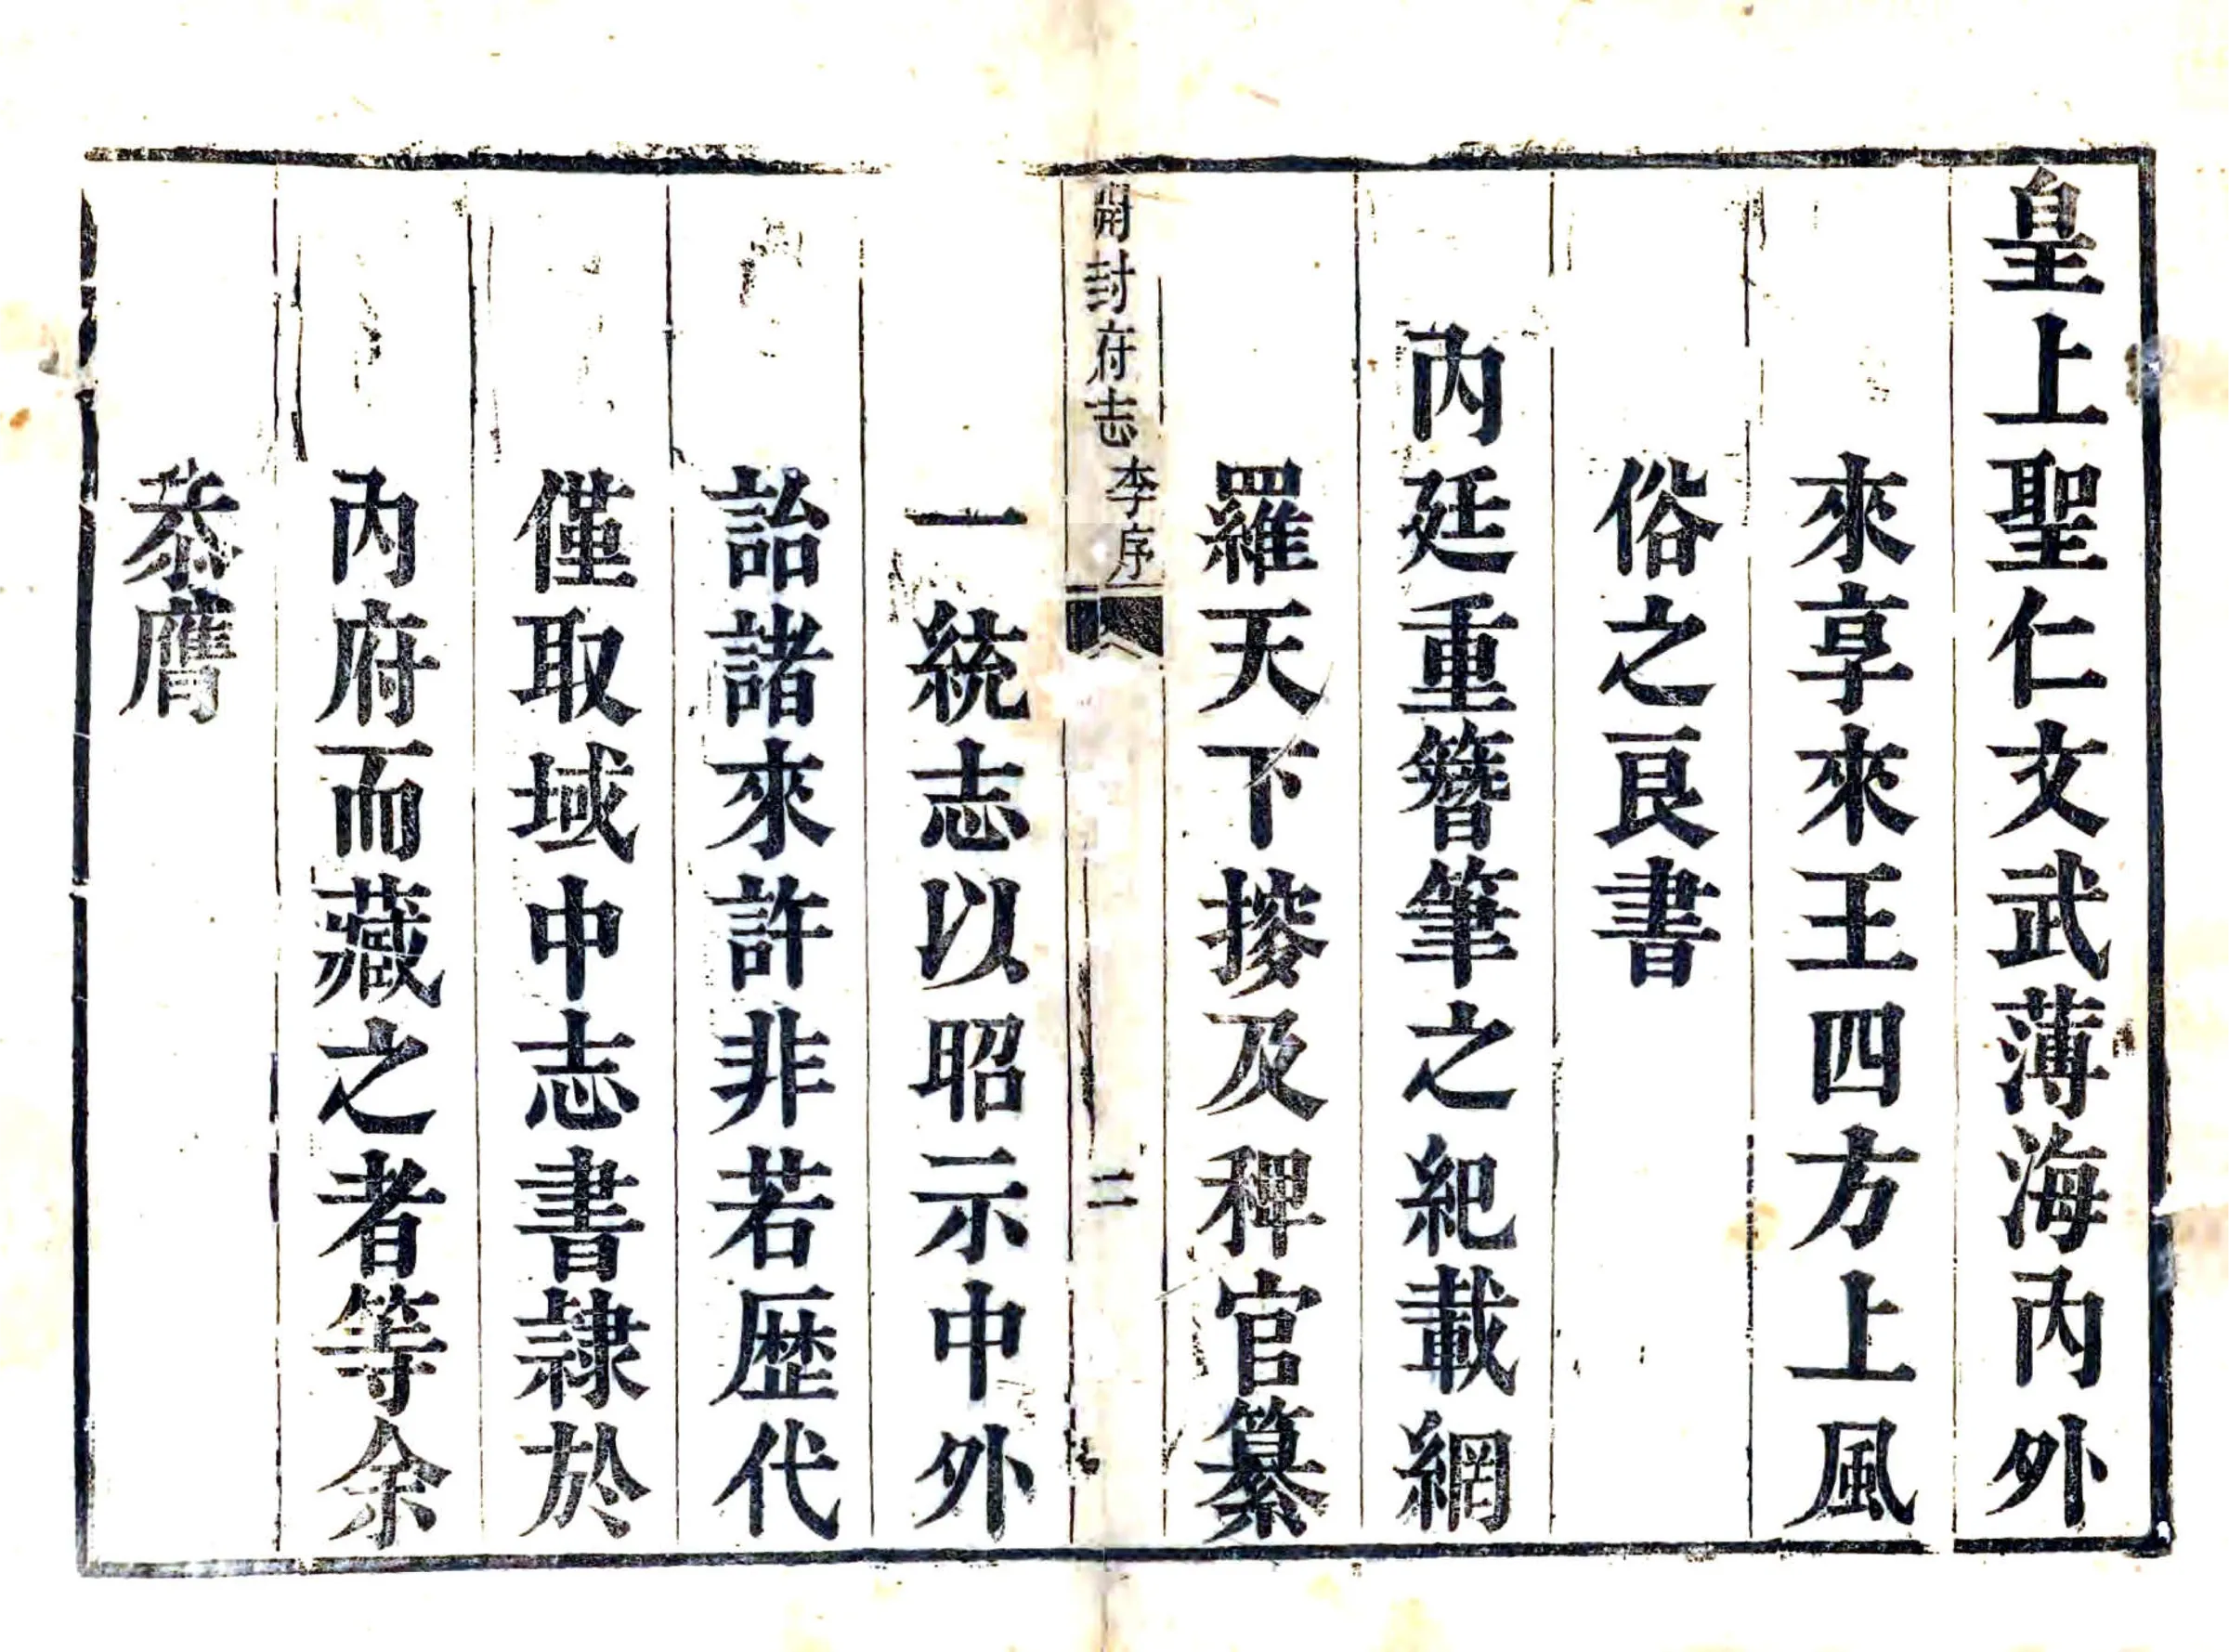 皇上聖仁文武薄海內外
來享來王四方上風
俗之良書
內廷重簪筆之紀載網
羅天下搜及稗官纂
開封府志 李序 二
一統志以昭示中外
詒諸來許非若歷代
僅取域中志書隷於
內府而藏之者等余
恭膺